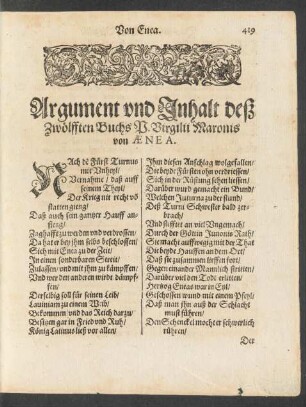 Von Enea.
419
Argument vnd Inhalt deß
Zwölfften Buchs P. Virgilii Maronis
von ÆNEA.
NAch dē Fürst Turnus
mit Vnheyl/
Vernahme / daß auff
seinem Theyl/
Der Krieg nit recht võ
statten gieng/
Daß auch sein gantzer Hauff an-
fieng/
Zaghafft zu werden vnd verdrossen/
Da hat er bey ihm selbs beschlossen/
Sich mit Enea zu der Zeit/
In einen sonderbaren Streit/
Zulassen/ vnd mit ihm zu kämpffen/
Vnd wer den anderen würde dämpf-
fen/
Derselbig soll für seinen Leib/
Lauiniam zu einem Weib/
Bekommen vnd das Reich darzu/
Besitzen gar in Fried vnd Ruh/
König Latinus ließ vor allen/
Ihm diesen Anschlag wolgefallen/
Die beyde Fürsten ohn verdriessen/
Sich in der Rüstung sehen liessen/
Darüber ward gemacht ein Bund/
Welchen Juturna zu der stund/
Deß Turni Schwester bald zer-
brach/
Vnd stifftet an viel Vngemach/
Durch der Göttin Iunonis Rath/
Sie macht auffrürig mit der That
Die beyde Hauffen an dem Ort/
Daß sie zusammen lieffen fort/
Gegen einander Mannlich streitten/
Darüber viel den Todt erlitten/
Hertzog Eneas war in Eyl/
Geschossen wund mit einem Pfeyl/
Daß man ihn auß der Schlacht
must führen/
Den Schenckel mocht er schwerlich
rühren/
Der